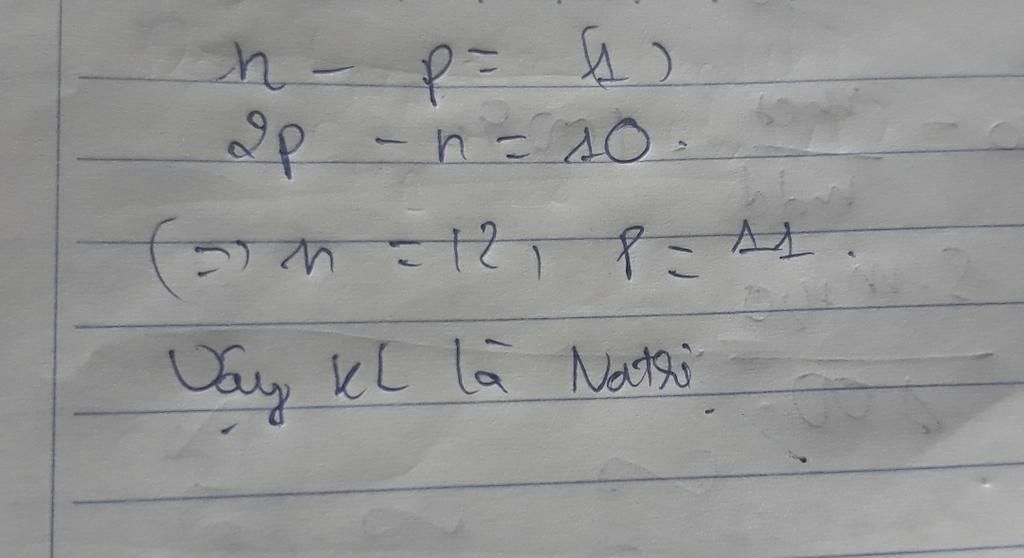 n - p = (1)
2p - n = 10.
(=> n = 12, p = 11.
Vậy KL là Natri.